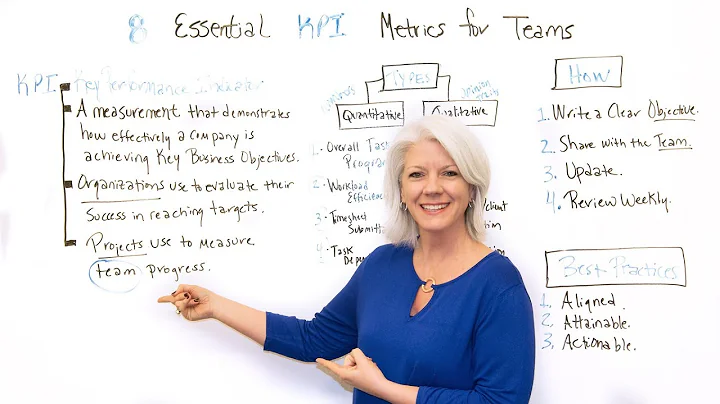 8 Essential KPI Metrics for Teams
KPI: Key Performance Indicator
A measurement that demonstrates
how effectively a company is
achieving Key Business Objectives.
Organizations use to evaluate their
Success in reaching targets.
Projects use to measure
team progress.
TYPES
Quantitative
Qualitative
1. Overall
2. Workload
3. Timesheet
4. Task
/client
How
1. Write a Clear Objective.
2. Share with the Team.
3. Update.
4. Review Weekly.
Best Practices
1. Aligned.
2. Attainable.
3. Actionable.